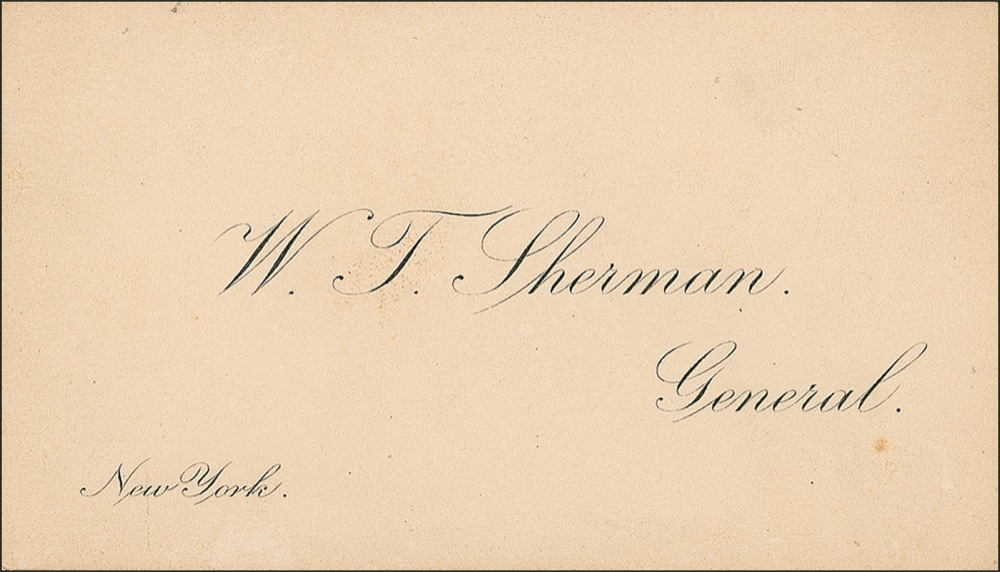 W. T. Sherman.
General.
New York.